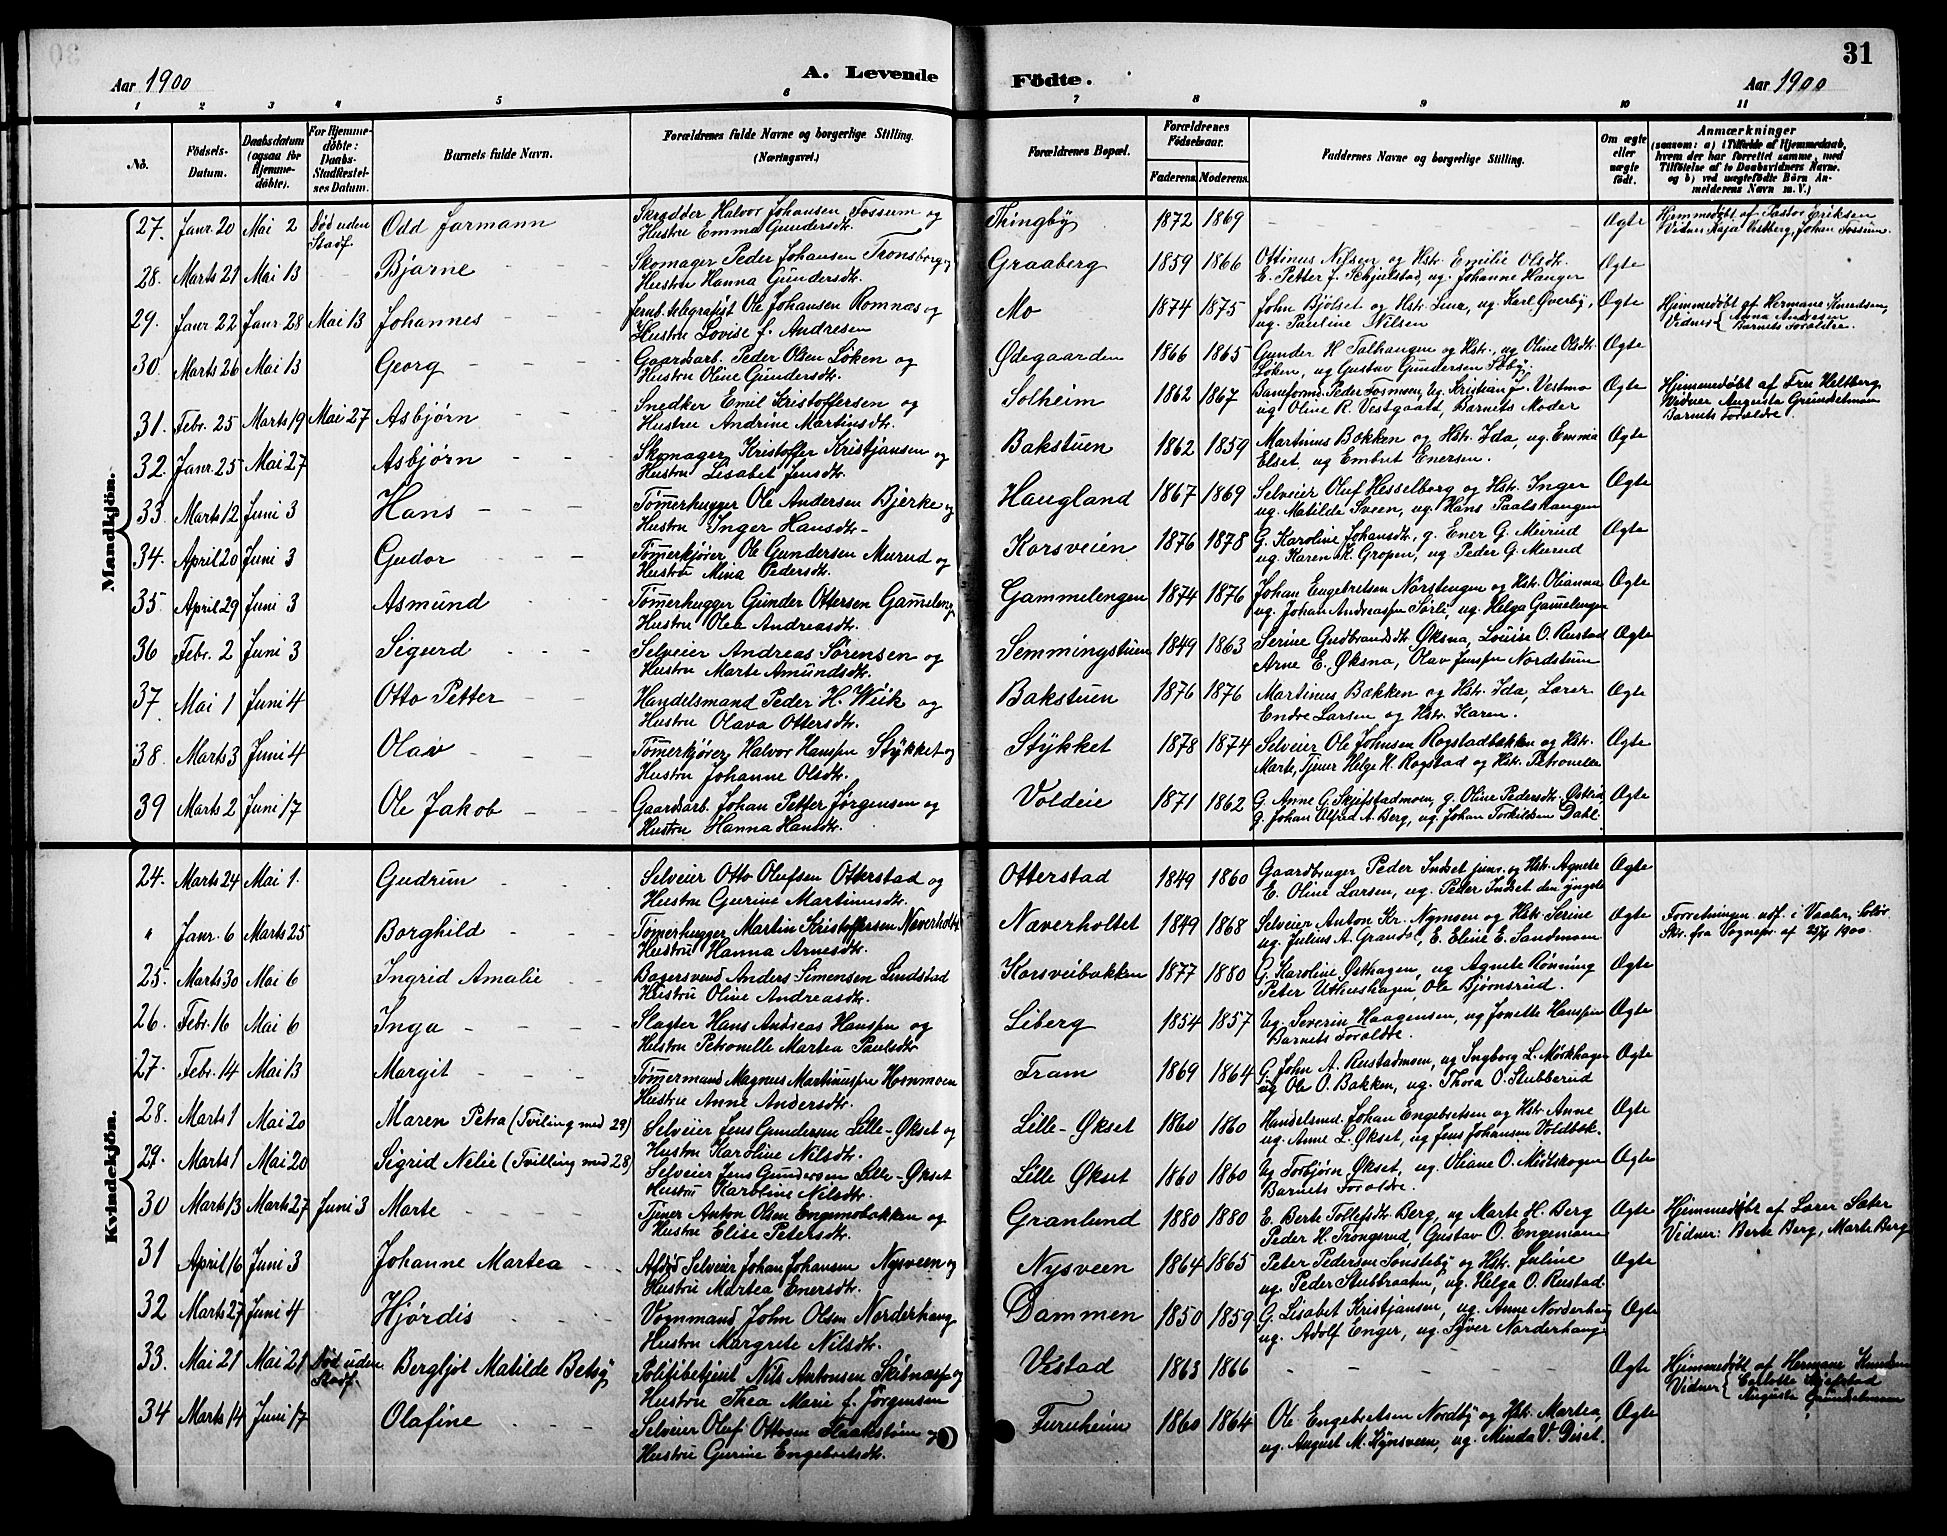 Aar 1900
A. Levende Födte.
Aar 1900
31
1 2 3 4 5 6 7 8 9 10 11
No. Födsels-Datum. Daabsdatum (ogsaa for Hjemmedöbte). For Hjemmedöbte: Daabs-Stadfæstelses Datum. Barnets fulde Navn. Forældrenes fulde Navne og borgerlige Stilling. (Næringsvei.) Forældrenes Bopæl. Forældrenes Födselsaar. Faderens. Moderens. Faddernes Navne og borgerlige Stilling. Om ægte eller uægte födt. Anmærkninger (saasom: a) i Tilfælde af Hjemmedaab, hvem der har forrettet samme, med Tilföielse af to Daabsvidners Navne, og b) ved uægtefödte Börn Anmelderens Navn m. V.)
Mandkjön.
27. Janr. 20 Mai 2 Død uden Stadf. Odd Jarmann Skrædder Halvor Johansen Fossum og Hustru Emma Gundersdtr. Thingby 1872 1869 - - - Ægte Hjemmedøbt af Pastor Eriksen Vidner Kaja Østberg, Johan Fossum.
28. Marts 21 Mai 13 Bjarne Skomager Peder Johansen Tronsberg og Hustru Hanna Gundersdtr. Graaberg 1859 1866 Ottinus Nilsen og Hstr. Emilie Olsdtr. E. Petter f. Skjulstad, ug. Johanne Hanger Ægte
29. Janr. 22 Janr. 28 Mai 13 Johannes Jernb. telegrafist Ole Johansen Romnæs og Hustru Lovise f. Andresen Mo 1874 1875 John Bjølset og Hstr. Lina, ug. Karl Gverby, ug. Pauline Nilsen Ægte Hjemmedøbt af Hermane Knudsen, Vidner { Anna Andresen Barnets Forældre.
30 Marts 26 Mai 13 Georg Gaardsarb. Peder Olsen Løken og Hustru Oline Gundersdtr. Ødegaarden 1866 1865 Gunder H. Talhaugen og Hstr., ug Oline Olsdtr. Løken, ug Gustav Gundersen Ægte
31. Febr. 25 Marts 19 Mai 27 Asbjørn Snedker Emil Kristoffersen og Hustru Andrine Martinsdtr. Solheim 1862 1867 Baneformd. Peder Fosmoen, Ug. Kristian J. Vestmo ug Oline R. Vestgaard, Barnets Moder Ægte Hjemmedøbt af Fru Heltberg Vidner Augusta Grundelman Barnets Forældre.
32. Janr. 25 Mai 27 Asbjørn Skomager Kristoffer Kristjansen og Hustru Lisabet Jensdtr. Bakstuen 1862 1859 Martinus Bakken og Hstr. Ida, ug. Emma Elset, ug Embret Enersen. Ægte
33. Marts 12 Juni 3 Hans Tømerhugger Ole Andersen Bjerke og Hustru Inger Hansdtr. Haugland 1867 1869 Selveier Oluf Hesselborg og Hstr. Inger ug. Matilde Sveen, ug Hans Paalshaugen Ægte
34. April 20 Juni 3 Gudor Tømerkjører Ole Gundersen Murud og Hustru Mina Pedersdtr. Korsveien 1876 1878 G. Karoline Johansdtr., g. Ener G. Meirud ug. Karen K. Gropen, ug Peder G. Murud Ægte
35 April 29 Juni 3 Asmund Tømerhugger Gunder Ottersen Gamelengen Hustru Olea Andreasdtr. Gammelengen 1874 1876 Johan Engebretsen Norstengen og Hstr. Olianna ug. Johan Andreassen Sørli, ug. Helga Gamelengen Ægte
36 Febr. 2 Juni 3 Sigurd Selveier Andreas Sørensen og Hustru Marte Amundsdtr. Semmingstuen 1849 1863 Serine Gudbrandsdtr. Øksna, Louise O. Rustad Arne E. Øksna, Olav Jenssen Nordstuen Ægte
37 Mai 1 Juni 4 Otto Petter Handelsmand Peder H. Wiik og Hustru Olava Ottersdtr. Bakstuen 1876 1876 Martinus Bakken og Hstr. Ida, Lærer Endre Larsen og Hstr. Karen. Ægte
38 Marts 3 Juni 4 Olav Tømerkjører Halvor Hanssen Stykket og Hustru Johanne Olsdtr. Stykket 1878 1874 Selveier Ole Johnsen Rogstadbakken og Hstr. Marte, Tjener Helge H. Rogstad og Hstr. Petronelle Ægte
39 Marts 2 Juni 17 Ole Jakob Gaardsarb. Johan Petter Jørgensen og Hustru Hanna Hansdtr. Voldeie 1871 1862 G. Anne G. Skjefstadmoen, g. Oline Pedersdtr. g. Johan Alfred A. Berg, ug. Johan Torkildsen Dahl. Ægte
Kvindekjön.
24. Marts 24 Mai 1. Gudrun Selveier Otto Olufsen Otterstad og Hustru Gurine Martinusdtr. Otterstad 1849 1860 Gaardbruger Peder Indset junr. og Hstr. Agnete E. Oline Larsen, ug. Peder Indset den yngste Ægte
" Janr. 6 Marts 25 Borghild Tømerhugger Martin Kristoffersen Næverholtet Hustru Hanna Arnesdtr. Næverholtet 1849 1868 Selveier Anton Kr. Nymoen og Hstr. Serine ug. Julius A. Grandal, E. Eline E. Sandmoen Ægte Forretningen udf. i Vaaler, Solør. Skr. fra Sognepr. af 25/4 1900.
25. Marts 30 Mai 6 Ingrid Amalie Bagersvend Anders Simensen Lundstad Hustru Oline Andreasdtr. Korsveibakken 1877 1880 G. Karoline Østhagen, ug Agnete Rønning Peter Uthushagen, Ole Bjørnsrud. Ægte
26. Febr. 16 Mai 6 Inga Slagter Hans Andreas Hanssen og Hustru Petronelle Martea Paulsdtr. Liberg 1854 1857 Ug. Severin Haagensen, ug Jonette Hanssen Barnets Forældre. Ægte
27. Febr. 14 Mai 13 Margit Tømmermand Magnus Martinussen Hornmoen Hustru Anne Andersdtr. Fram 1869 1864 G. John A. Rustadmoen, ug Ingborg L. Mørkhagen ug Ole O. Bakken, ug. Thora O. Stubberud Ægte
28. Marts 1 Mai 20 Maren Petra (Tvilling med 29) Selveier Jens Gundersen Lille-Økset og Hustru Karoline Nilsdtr. Lille-Økset 1860 1860 Handelsmd. Johan Engebretsen og Hstr. Anne ug. Anne L. Økset, ug Jens Johansen Voldbak. Ægte
29. Marts 1 Mai 20 Sigrid Nelie (Tvilling med 28) Selveier Jens Gundersen Lille-Økset Hustru Karoline Nilsdtr. Lille Økset 1860 1860 Ug Torbjørn Økset, ug. Oliane O. Midtskogen Barnets Forældre. Ægte
30 Marts 13 Marts 27 Juni 3 Marte Tjener Anton Olsen Engemobakken og Hustru Elise Petersdtr. Granlund 1880 1880 E. Berte Tollefsdtr. Berg, ug Marte H. Berg Peder H. Trongsrud, Gustav O. Engemoen Ægte Hjemmedøbt af Lærer Sæter Vidner: Berte Berg, Marte Berg
31 April 16 Juni 3 Johanne Martea Afdød Selveier Johan Johansen Nysveen og Hustru Martea Enersdtr. Nysveen 1864 1865 Peter Pedersen Sønsteby og Hstr. Juline ug. Peder Stubbraaten, ug. Helga O. Rustad. Ægte
32 Marts 27 Juni 4 Hjørdis Vognmand John Olsen Norderhaug Hustru Margrete Nilsdtr. Dammen 1850 1859 G. Lisabet Kristjansen, ug. Anne Norderhaug ug. Adolf Enger, ug. Syver Norderhaug Ægte
33. Mai 21 Mai 21 Død uden Stadf. Bergljot Matilde Betsy Politibetjent Nils Antonsen Skibnæss og Hustru Thea Marie f. Jørgensen Vestad 1863 1866 - - - Ægte Hjemmedøbt af Hermane Knudsen Vidner { Carlotte Skjefstad Augusta Grundelman
34 Marts 14 Juni 17 Olafine Selveier Oluf Ottosen Haakstuen og Hustru Gurine Engebretsdtr. Furuheim 1860 1864 Ole Engebretsen Nordby og Hstr. Martea, ug. August M. Kynsveen, ug. Minda V. Diset. Ægte